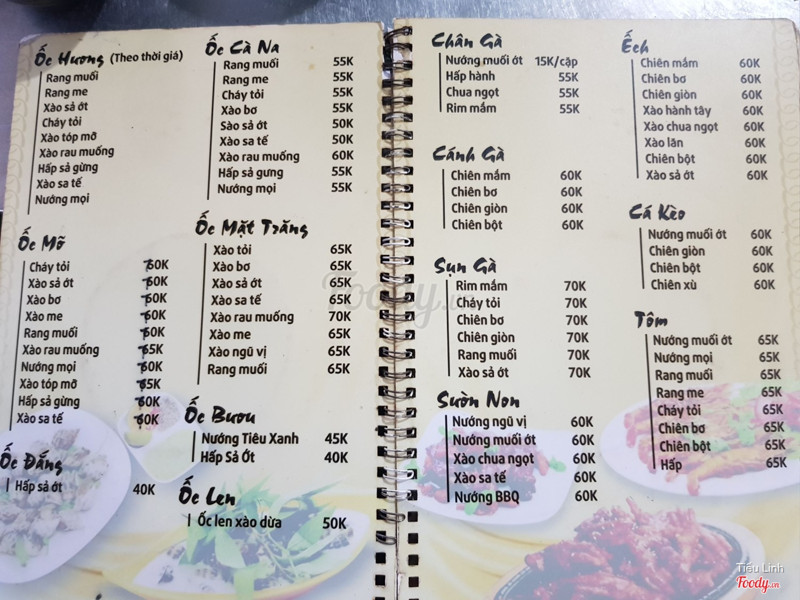 Ốc Hương (Theo thời giá)
Rang muối
Rang me
Xào sả ớt
Cháy tỏi
Xào tóp mỡ
Xào rau muống
Hấp sả gừng
Xào sa tế
Nướng mọi
Ốc Mỡ
Cháy tỏi 60K
Xào sả ớt 60K
Xào bơ 60K
Xào me 60K
Rang muối 60K
Xào rau muống 65K
Nướng mọi 60K
Xào tóp mỡ 65K
Hấp sả gừng 60K
Xào sa tế 60K
Ốc Đắng
Hấp sả ớt 40K
Ốc Cà Na
Rang muối 55K
Rang me 55K
Cháy tỏi 55K
Xào bơ 55K
Sào sả ớt 50K
Xào sa tế 50K
Xào rau muống 60K
Hấp sả gưng 55K
Nướng mọi 55K
Ốc Mặt Trăng
Xào tỏi 65K
Xào bơ 65K
Xào sả ớt 65K
Xào sa tế 65K
Xào rau muống 70K
Xào me 65K
Xào ngũ vị 65K
Rang muối 65K
Ốc Bươu
Nướng Tiêu Xanh 45K
Hấp Sả Ớt 40K
Ốc Len
Ốc len xào dừa 50K
Chân Gà
Nướng muối ớt 15K/cặp
Hấp hành 55K
Chua ngọt 55K
Rim mắm 55K
Cánh Gà
Chiên mắm 60K
Chiên bơ 60K
Chiên giòn 60K
Chiên bột 60K
Sụn Gà
Rim mắm 70K
Cháy tỏi 70K
Chiên bơ 70K
Chiên giòn 70K
Rang muối 70K
Xào sả ớt 70K
Sườn Non
Nướng ngũ vị 60K
Nướng muối ớt 60K
Xào chua ngọt 60K
Xào sa tế 60K
Nướng BBQ 60K
Ếch
Chiên mắm 60K
Chiên bơ 60K
Chiên giòn 60K
Xào hành tây 60K
Xào chua ngọt 60K
Xào lăn 60K
Chiên bột 60K
Xào sả ớt 60K
Cá Kèo
Nướng muối ớt 60K
Chiên giòn 60K
Chiên bột 60K
Chiên xù 60K
Tôm
Nướng muối ớt 65K
Nướng mọi 65K
Rang muối 65K
Rang me 65K
Cháy tỏi 65K
Chiên bơ 65K
Chiên bột 65K
Hấp 65K
Foody.vn
Tiểu Linh
Foody.vn